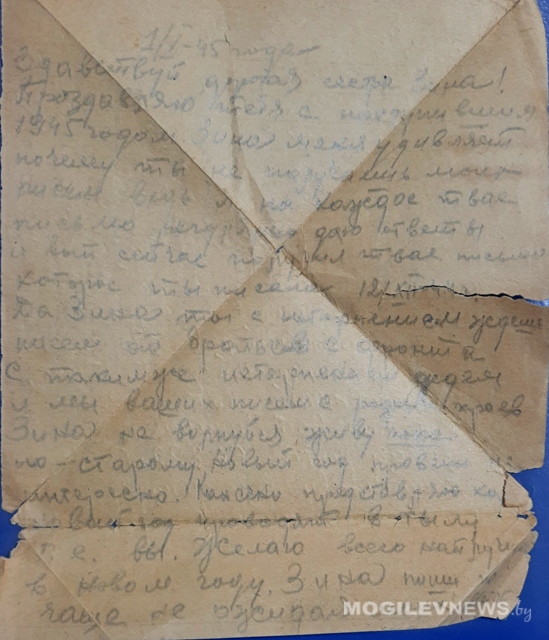 1/I-45 года
Здавствуй дорогая сестра Зина!
Проздавляю тебя с наступившим
1945 годом. Зина меня удивляет
почему ты не получаешь моих
писем ведь я на каждое твае
письмо даю ответы
и вот сейчас получил твае письмо
которое ты писала 12/XII
Да Зина ты с нетерпением ждешь
писем от братьев с фронта
С такимже нетерпением ждем
и мы ваших писем с родных краев
Зина не волнуйся, живу пока
по-старому. Новый год провели не
интересно. Конечно представляю ка
новый год проводят в тылу
т. е. вы. Желаю всего наилучш
в новом году. Зина пиши
чаще не ожидай
MOGILEVNEWS.by